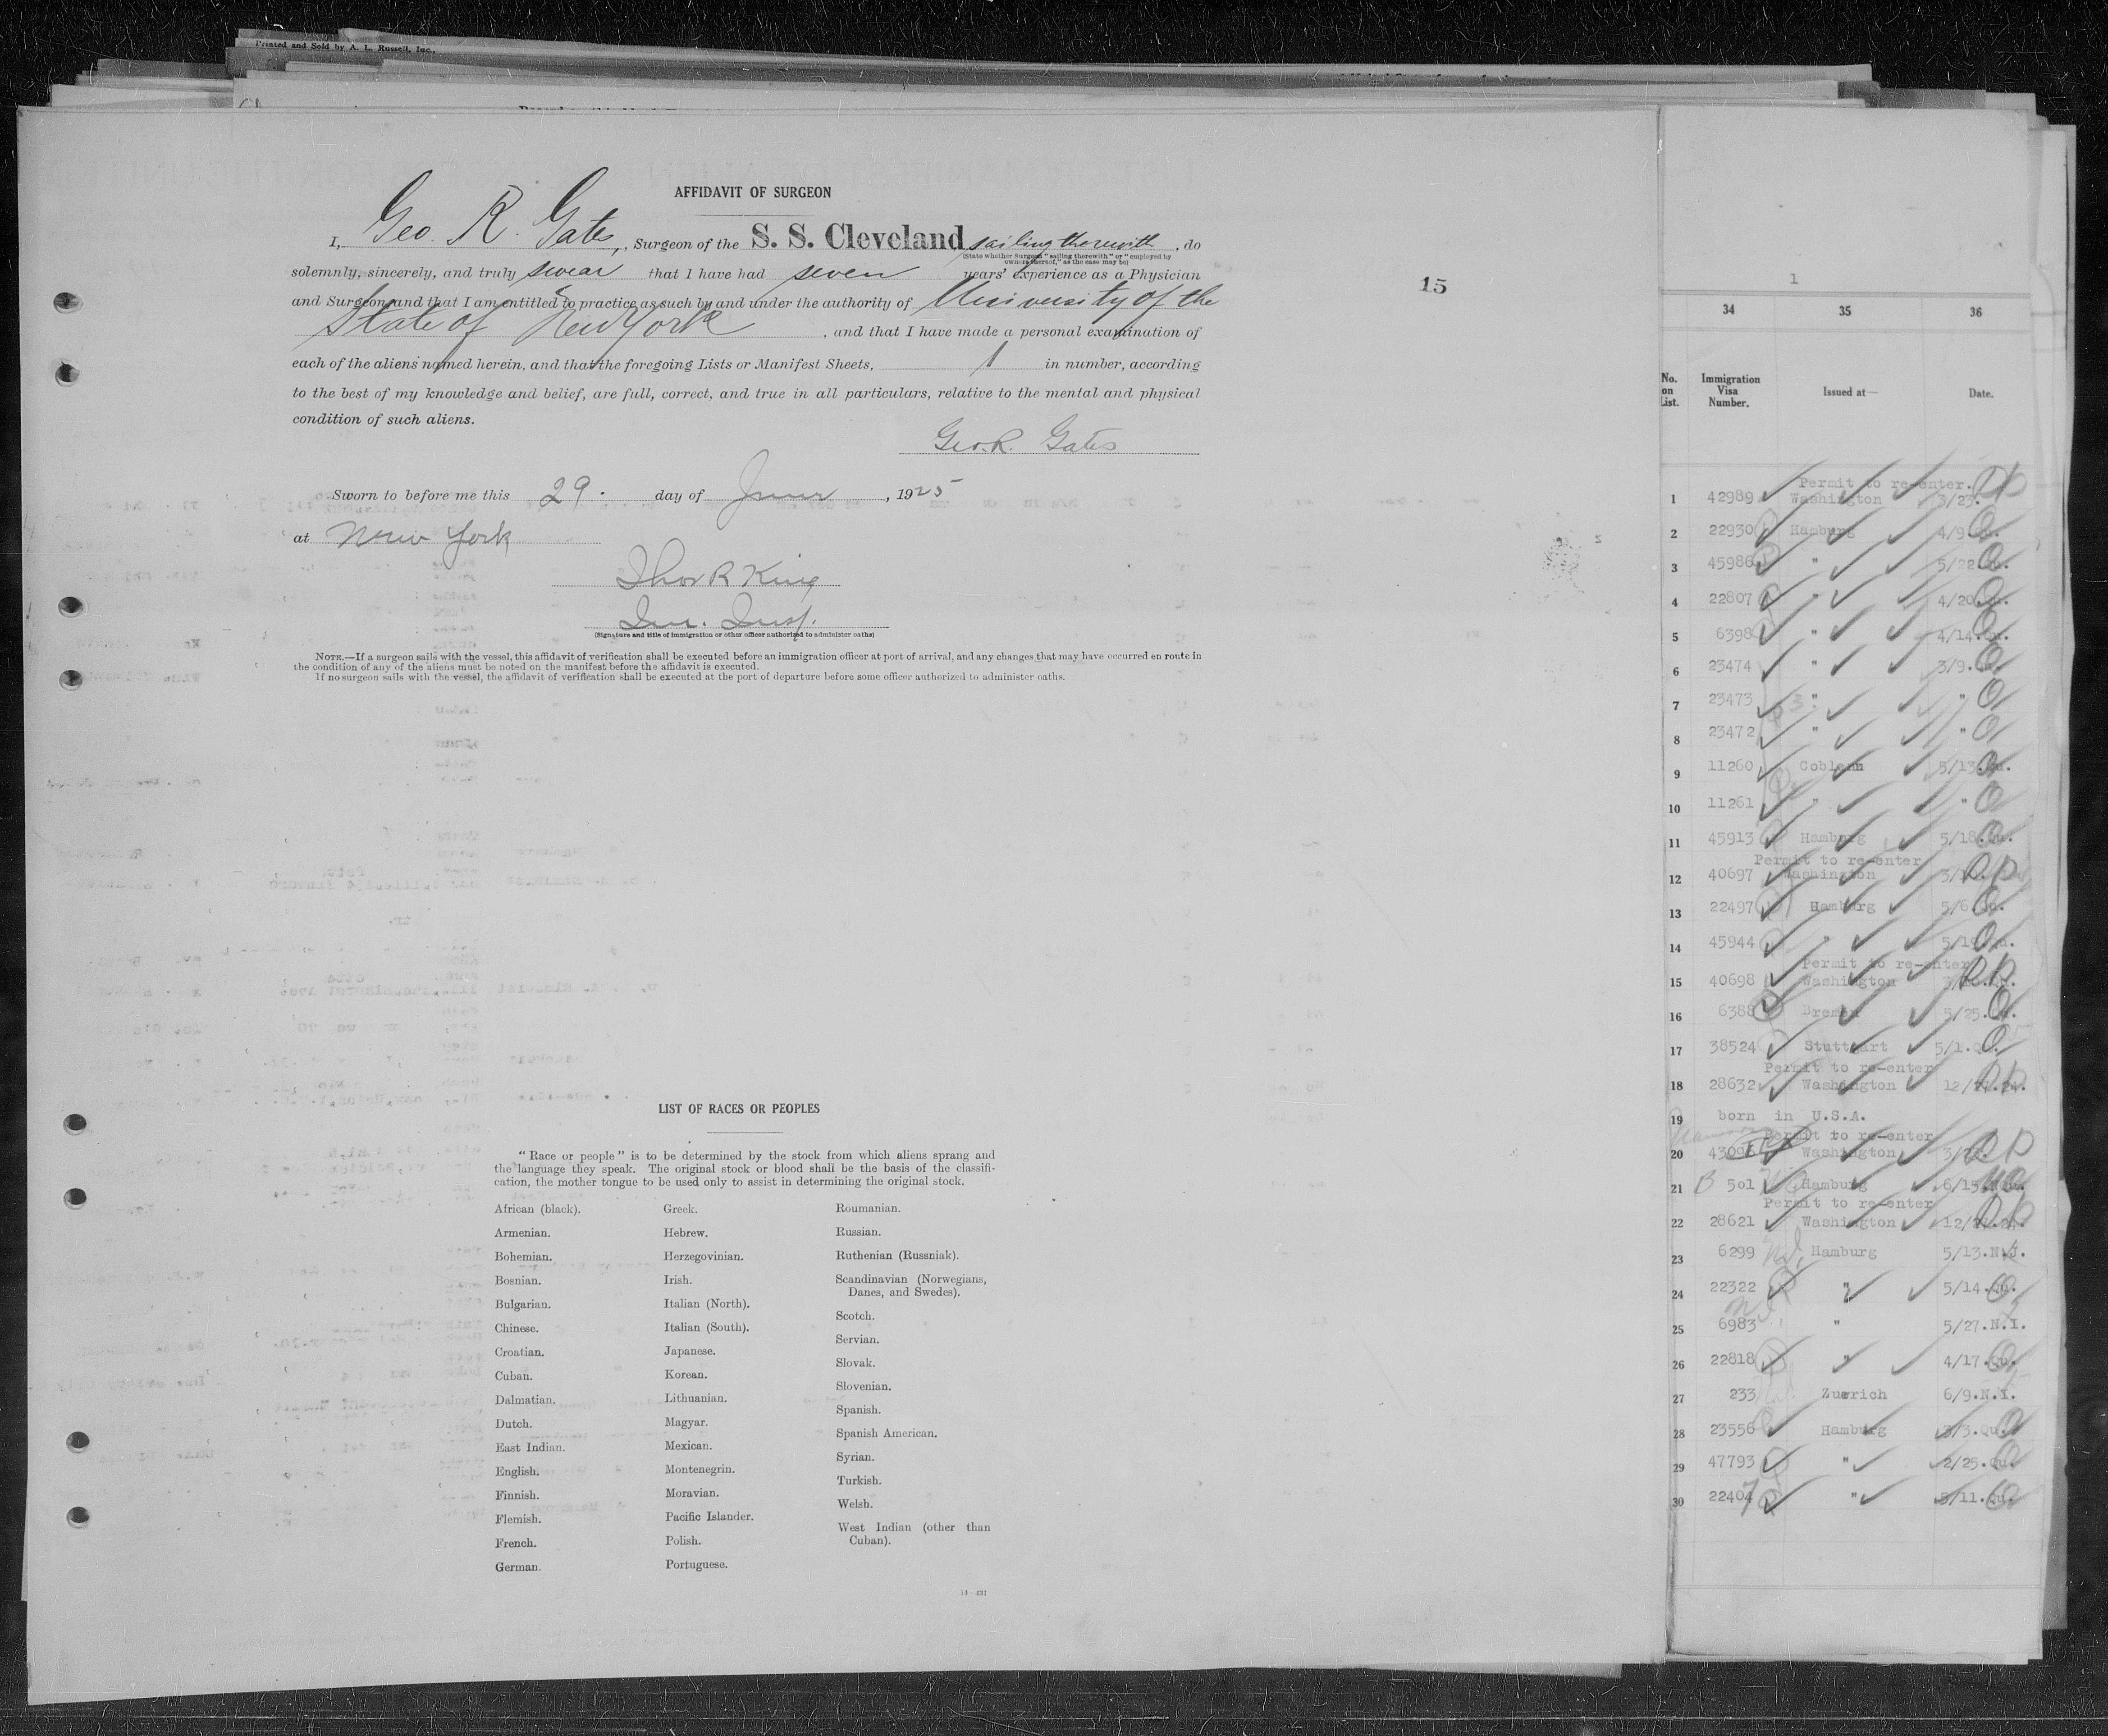 Printed and Sold by A. L. Russell, Inc.,
AFFIDAVIT OF SURGEON
I, Geo. R. Gates, Surgeon of the S. S. Cleveland sailing therewith, do
(State whether Surgeon "sailing therewith" or "employed by
owners thereof," as the case may be)
solemnly, sincerely, and truly swear that I have had seven years' experience as a Physician
and Surgeon and that I am entitled to practice as such by and under the authority of University of the
State of New York, and that I have made a personal examination of
each of the aliens named herein, and that the foregoing Lists or Manifest Sheets, 1 in number, according
to the best of my knowledge and belief, are full, correct, and true in all particulars, relative to the mental and physical
condition of such aliens.
Geo. R. Gates
Sworn to before me this 29. day of June, 1925
at New York
Thos R King
Im. Insp.
(Signature and title of immigration or other officer authorized to administer oaths)
NOTE.—If a surgeon sails with the vessel, this affidavit of verification shall be executed before an immigration officer at port of arrival, and any changes that may have occurred en route in
the condition of any of the aliens must be noted on the manifest before the affidavit is executed.
If no surgeon sails with the vessel, the affidavit of verification shall be executed at the port of departure before some officer authorized to administer oaths.
15
LIST OF RACES OR PEOPLES
"Race or people" is to be determined by the stock from which aliens sprang and
the language they speak. The original stock or blood shall be the basis of the classifi-
cation, the mother tongue to be used only to assist in determining the original stock.
African (black).
Armenian.
Bohemian.
Bosnian.
Bulgarian.
Chinese.
Croatian.
Cuban.
Dalmatian.
Dutch.
East Indian.
English.
Finnish.
Flemish.
French.
German.
Greek.
Hebrew.
Herzegovinian.
Irish.
Italian (North).
Italian (South).
Japanese.
Korean.
Lithuanian.
Magyar.
Mexican.
Montenegrin.
Moravian.
Pacific Islander.
Polish.
Portuguese.
Roumanian.
Russian.
Ruthenian (Russniak).
Scandinavian (Norwegians,
Danes, and Swedes).
Scotch.
Servian.
Slovak.
Slovenian.
Spanish.
Spanish American.
Syrian.
Turkish.
Welsh.
West Indian (other than
Cuban).
1
34 35 36
No. on List. Immigration Visa Number. Issued at— Date.
Permit to re-enter.
1 42989 Washington 3/23.
2 22930 Hamburg 4/9.
3 45986 " 5/22.
4 22807 " 4/20.
5 6398 " 4/14.
6 23474 " 3/9.
7 23473 " "
8 23472 " "
9 11260 Coblenz 5/13.
10 11261 " "
11 45913 Hamburg 5/18.
Permit to re-enter
12 40697 Washington
13 22497 Hamburg 5/6.
14 45944 " 5/19.
Permit to re-enter
15 40698 Washington
16 6388 Bremen 5/25.
17 38524 Stuttgart 5/1.
Permit to re-enter
18 28632 Washington 12/27.24.
19 born in U.S.A.
Permit to re-enter
20 Washington
21 B 501 Hamburg 6/15.
Permit to re-enter
22 28621 Washington 12/27.24.
23 6299 Hamburg 5/13.N.I.
24 22322 " 5/14.Qu.
25 6983 " 5/27.N.I.
26 22818 " 4/17.Qu.
27 233 Zuerich 6/9.N.I.
28 23556 Hamburg 3/3.Qu.
29 47793 " 2/25.Qu.
30 22404 " 5/11.Qu.